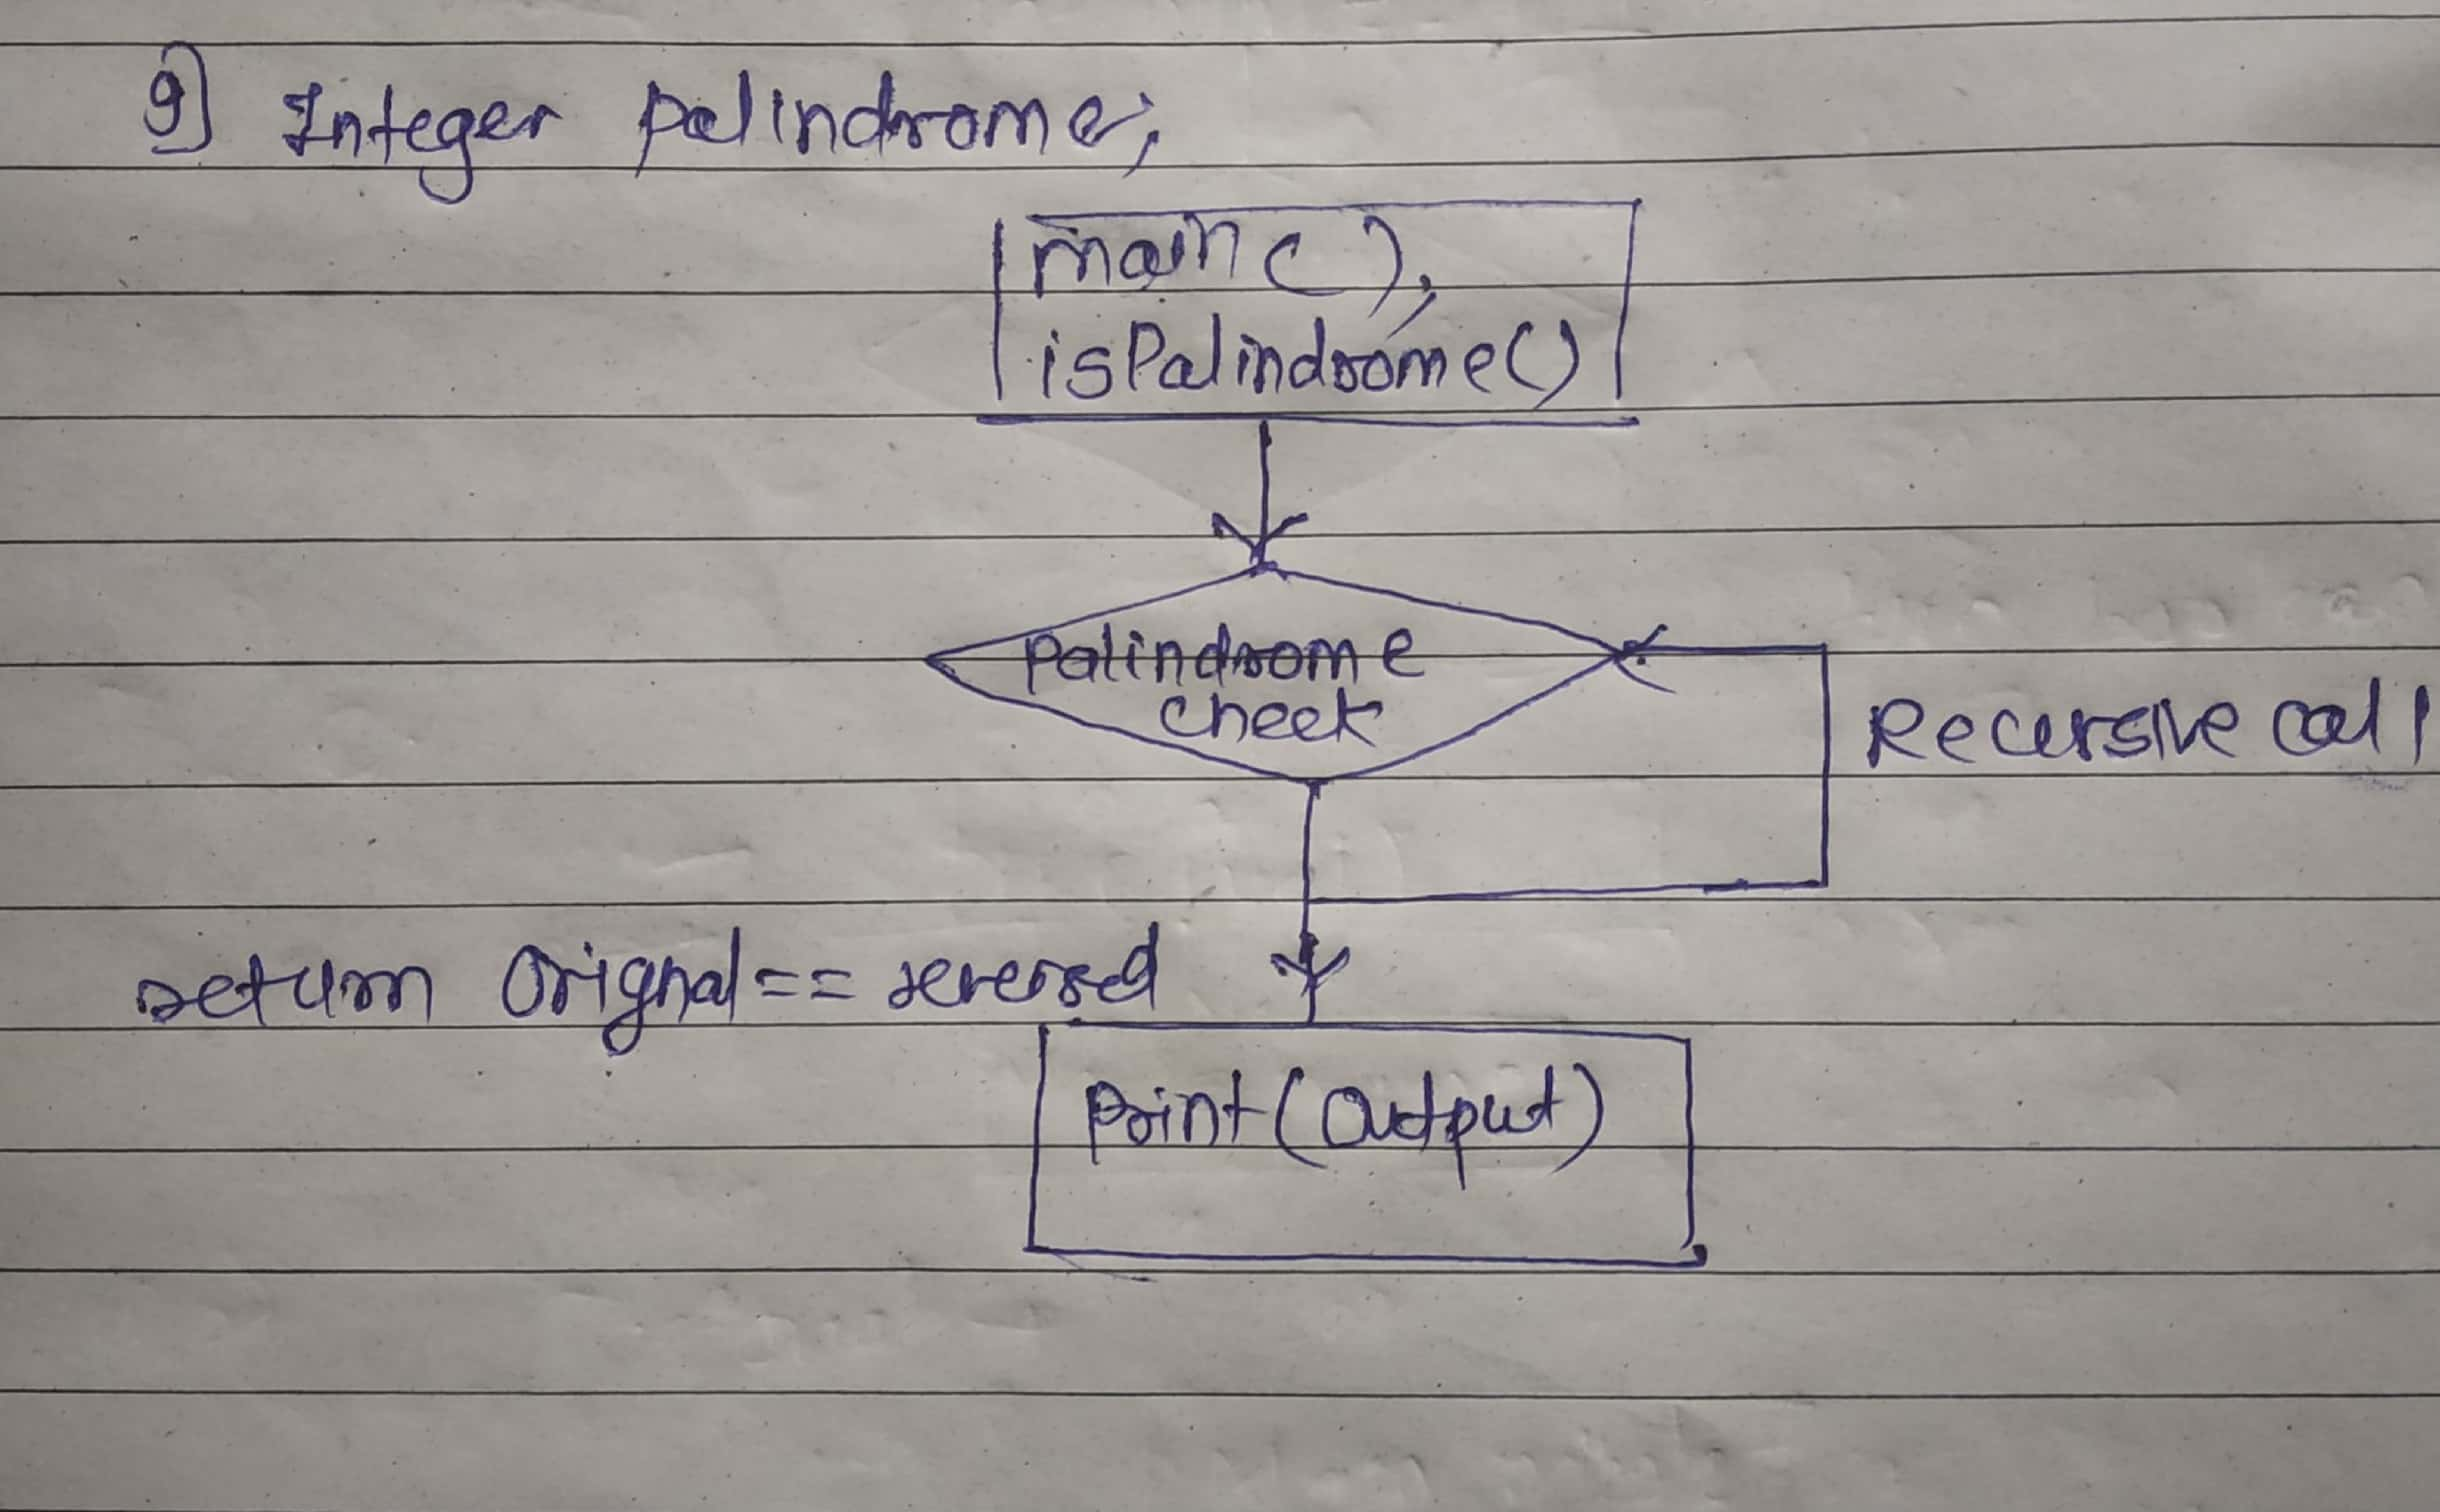 9) Integer palindrome;
main();
isPalindrome()
Palindrome
check
Recursive call
return Orignal == reversed
Print(Output)